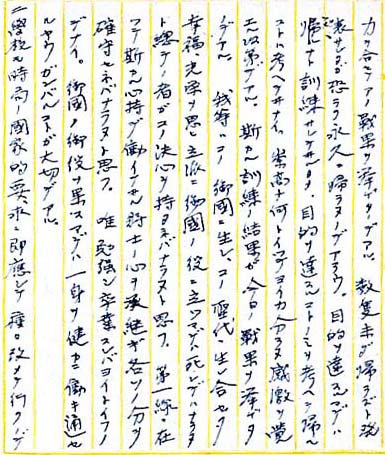 力ガ合シテアノ戦果ヲ挙ゲタノデアル。 数隻未ダ帰ラズト発
表セルガ恐ラク永久ニ帰ラヌノデアラウ。目的ヲ達スルマデハ
帰ルナト訓練サレタ 目的ヲ達スルコトノミヲ考ヘテ帰ル
コトハ考ヘテヰナイ。崇高ナ何トイッテヨイカ分ラヌ感激ヲ覚
エル次第デアル。 斯カル訓練ノ結果ガ今日ノ戦果ヲ挙ゲタ
ノデアル。 我等ハコノ御國ニ生レ、コノ聖代ニ生レ合セタ
幸福ト光栄ヲ思ヒ立派ニ御國ノ役ニ立ツマデハ死ンデハナラヌ
ト総テノ者ガコノ決心ヲ持タネバナラヌト思フ。 第一線ニ在
ツテ斯カル心持デ働イテヰル将士ノ心ヲ承継ギ各ソノ分ヲ
確守セネバナラヌト思フ。 唯勉強シ卒業スレバヨイトイフノ
デナイ。 御國ノ御役ヲ果スマデハ一身ヲ健カニ働キ通セ
ルヤウガンバルコトガ大切デアル。
学校モ時局ノ國家的要求ニ即應シテ種々改メテ行クノデ